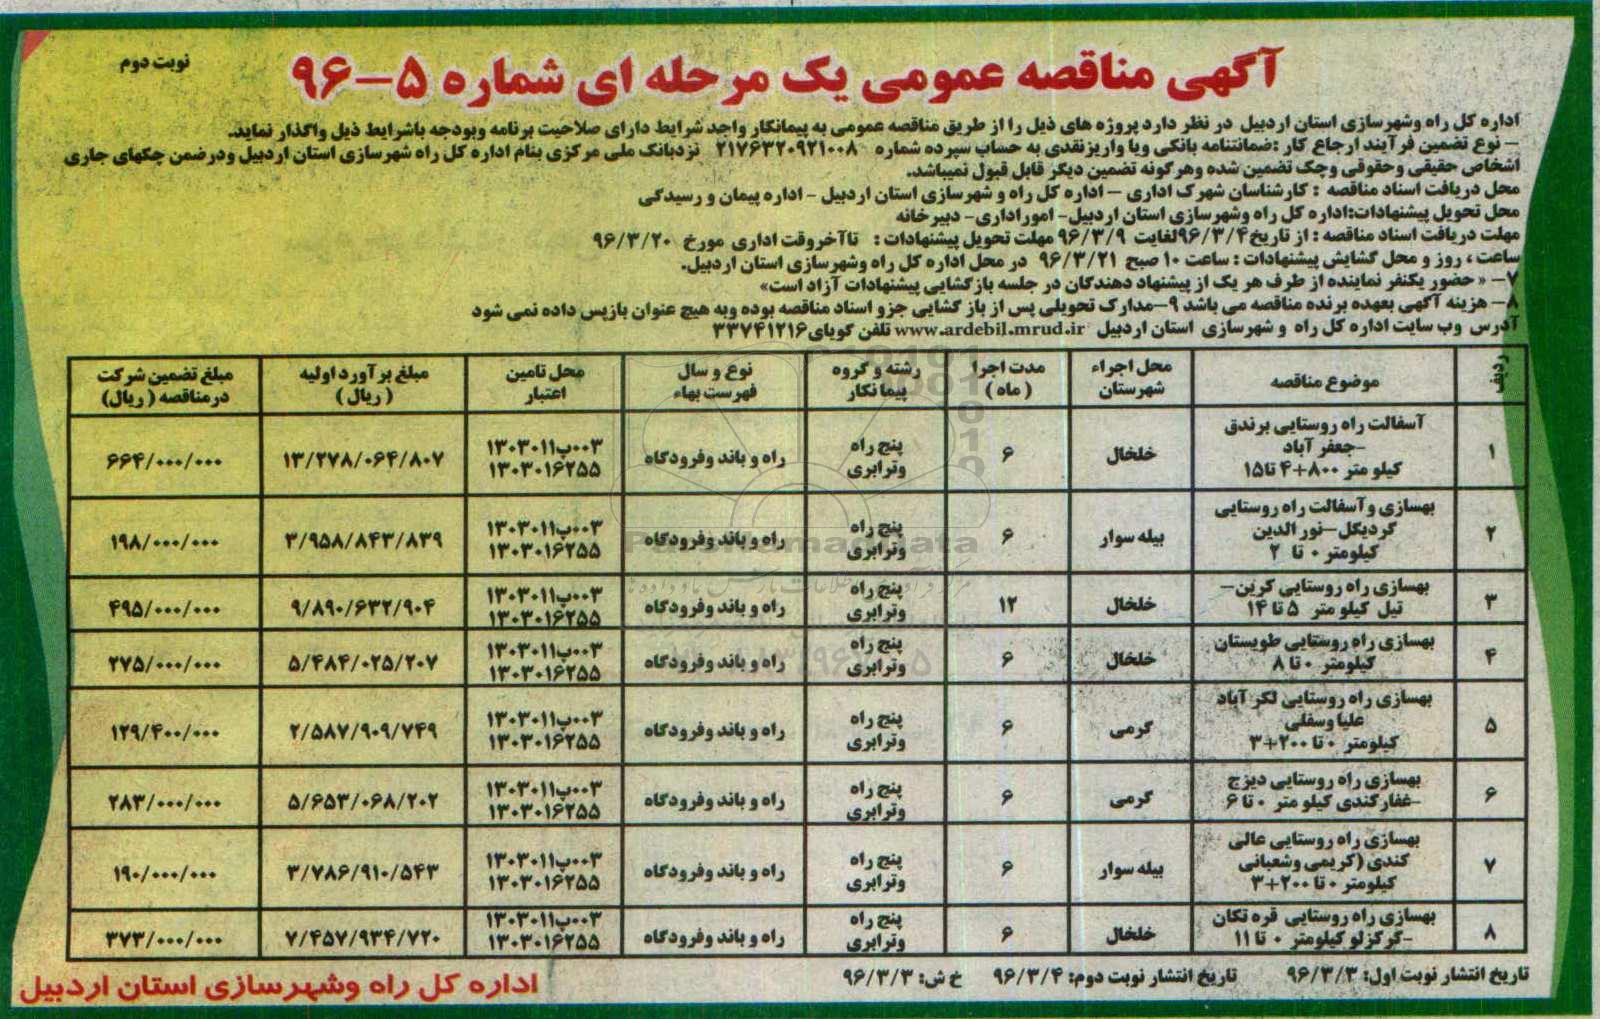 نوبت دوم
آگهی مناقصه عمومی یک مرحله ای شماره ۵-۹۶
اداره کل راه وشهرسازی استان اردبیل در نظر دارد پروژه های ذیل را از طریق مناقصه عمومی به پیمانکار واجد شرایط دارای صلاحیت برنامه وبودجه باشرایط ذیل واگذار نماید.
– نوع تضمین فرآیند ارجاع کار :ضمانتنامه بانکی ویا واریزنقدی به حساب سپرده شماره ۲۱۷۶۳۲۰۹۲۱۰۰۸ نزدبانک ملی مرکزی بنام اداره کل راه شهرسازی استان اردبیل ودرضمن چکهای جاری
اشخاص حقیقی وحقوقی وچک تضمین شده وهرگونه تضمین دیگر قابل قبول نمیباشد.
محل دریافت اسناد مناقصه : کارشناسان شهرک اداری – اداره کل راه و شهرسازی استان اردبیل - اداره پیمان و رسیدگی
محل تحویل پیشنهادات:اداره کل راه وشهرسازی استان اردبیل- اموراداری- دبیرخانه
مهلت دریافت اسناد مناقصه : از تاریخ۹۶/۳/۴لغایت ۹۶/۳/۹ مهلت تحویل پیشنهادات : تاآخروقت اداری مورخ ۹۶/۳/۲۰
ساعت ، روز و محل گشایش پیشنهادات : ساعت ۱۰ صبح ۹۶/۳/۲۱ در محل اداره کل راه وشهرسازی استان اردبیل.
۷– « حضور یکنفر نماینده از طرف هر یک از پیشنهاد دهندگان در جلسه بازگشایی پیشنهادات آزاد است»
۸– هزینه آگهی بعهده برنده مناقصه می باشد ۹–مدارک تحویلی پس از باز گشایی جزو اسناد مناقصه بوده وبه هیچ عنوان بازپس داده نمی شود
آدرس وب سایت اداره کل راه و شهرسازی استان اردبیل www.ardebil.mrud.ir تلفن گویای۳۳۷۴۱۲۱۶
ردیف موضوع مناقصه محل اجراء شهرستان مدت اجرا (ماه ) رشته و گروه پیمانکار نوع و سال فهرست بهاء محل تامین اعتبار مبلغ برآورد اولیه (ریال ) مبلغ تضمین شرکت درمناقصه ( ریال)
۱ آسفالت راه روستایی برندق -جعفر آباد کیلو متر ۸۰۰+۴ تا۱۵ خلخال ۶ پنج راه وترابری راه و باند وفرودگاه ۰۰۳ب۱۳۰۳۰۱۱ ۱۳۰۳۰۱۶۲۵۵ ۱۳/۲۷۸/۰۶۴/۸۰۷ ۶۶۴/۰۰۰/۰۰۰
۲ بهسازی وآسفالت راه روستایی گردیکل–نورالدین کیلومتر ۰ تا ۲ بیله سوار ۶ پنج راه وترابری راه و باند وفرودگاه ۰۰۳ب۱۳۰۳۰۱۱ ۱۳۰۳۰۱۶۲۵۵ ۳/۹۵۸/۸۴۳/۸۳۹ ۱۹۸/۰۰۰/۰۰۰
۳ بهسازی راه روستایی کرین– تیل کیلو متر ۵ تا ۱۴ خلخال ۱۲ پنج راه وترابری راه و باند وفرودگاه ۰۰۳ب۱۳۰۳۰۱۱ ۱۳۰۳۰۱۶۲۵۵ ۹/۸۹۰/۶۳۲/۹۰۴ ۴۹۵/۰۰۰/۰۰۰
۴ بهسازی راه روستایی طویستان کیلومتر ۰ تا ۸ خلخال ۶ پنج راه وترابری راه و باند وفرودگاه ۰۰۳ب۱۳۰۳۰۱۱ ۱۳۰۳۰۱۶۲۵۵ ۵/۴۸۴/۰۲۵/۲۰۷ ۲۷۵/۰۰۰/۰۰۰
۵ بهسازی راه روستایی لکر آباد علیا وسفلی کیلومتر ۰ تا ۲۰۰+۳ گرمی ۶ پنج راه وترابری راه و باند وفرودگاه ۰۰۳ب۱۳۰۳۰۱۱ ۱۳۰۳۰۱۶۲۵۵ ۲/۵۸۷/۹۰۹/۷۴۹ ۱۲۹/۴۰۰/۰۰۰
۶ بهسازی راه روستایی دیزج -غفارکندی کیلو متر ۰ تا ۶ گرمی ۶ پنج راه وترابری راه و باند وفرودگاه ۰۰۳ب۱۳۰۳۰۱۱ ۱۳۰۳۰۱۶۲۵۵ ۵/۶۵۳/۰۶۸/۲۰۲ ۲۸۳/۰۰۰/۰۰۰
۷ بهسازی راه روستایی عالی کندی (کریمی وشعبانی کیلومتر ۰ تا ۲۰۰+۳ بیله سوار ۶ پنج راه وترابری راه و باند وفرودگاه ۰۰۳ب۱۳۰۳۰۱۱ ۱۳۰۳۰۱۶۲۵۵ ۳/۷۸۶/۹۱۰/۵۴۳ ۱۹۰/۰۰۰/۰۰۰
۸ بهسازی راه روستایی قره تکان -گرگزلو کیلومتر ۰ تا ۱۱ خلخال ۶ پنج راه وترابری راه و باند وفرودگاه ۰۰۳ب۱۳۰۳۰۱۱ ۱۳۰۳۰۱۶۲۵۵ ۷/۴۵۷/۹۳۴/۷۲۰ ۳۷۳/۰۰۰/۰۰۰
تاریخ انتشار نوبت اول: ۹۶/۳/۳ تاریخ انتشار نوبت دوم: ۹۶/۳/۴ خ ش: ۹۶/۳/۳
اداره کل راه وشهرسازی استان اردبیل